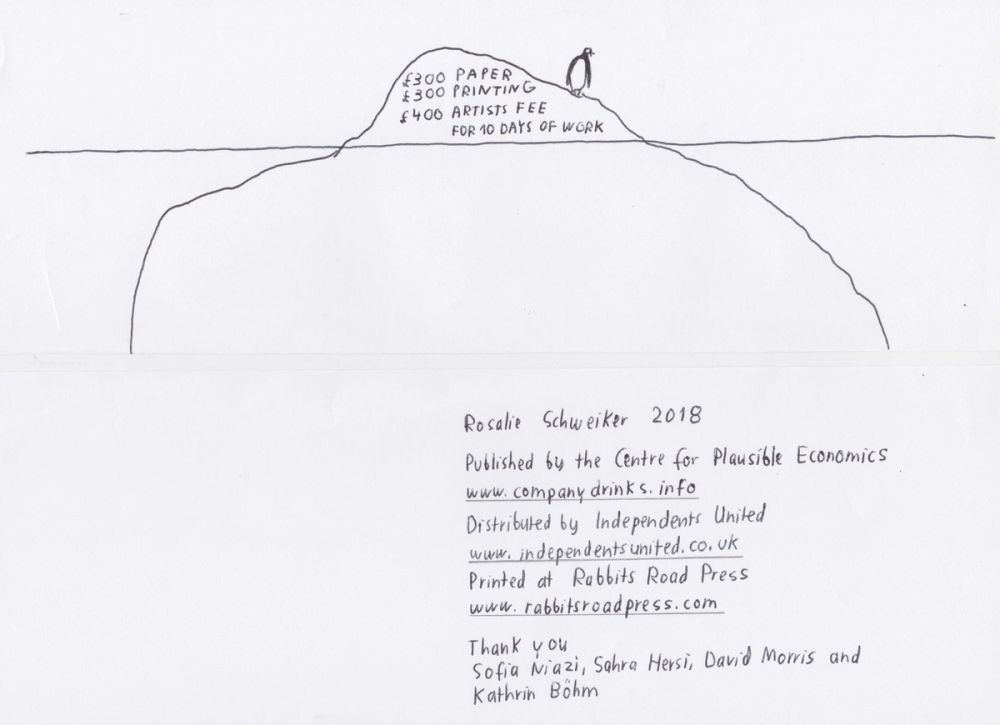 £300 PAPER
£300 PRINTING
£400 ARTISTS FEE
FOR 10 DAYS OF WORK
Rosalie Schweiker 2018
Published by the Centre for Plausible Economics
www.companydrinks.info
Distributed by Independents United
www.independentsunited.co.uk
Printed at Rabbits Road Press
www.rabbitsroadpress.com
Thank you
Sofia Niazi, Sahra Hersi, David Morris and
Kathrin Böhm